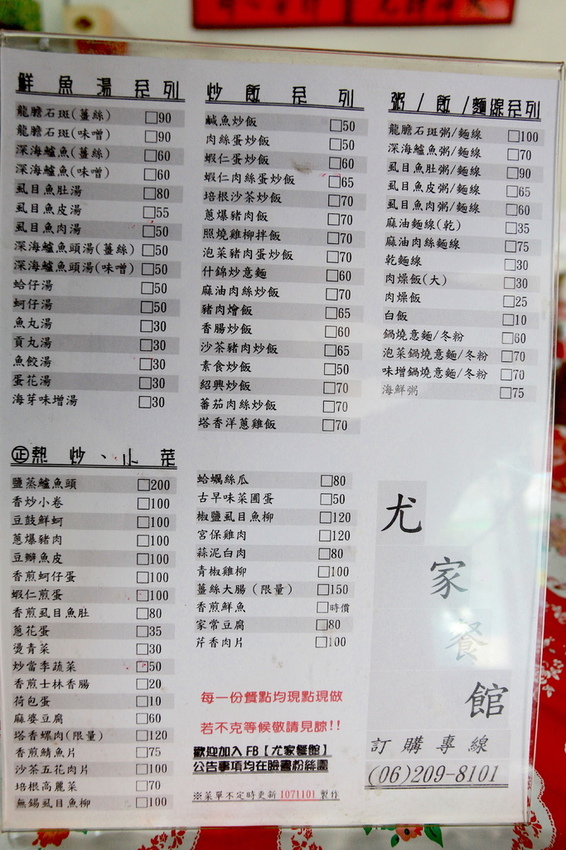 鮮魚湯系列
龍膽石斑(薑絲) □90
龍膽石斑(味噌) □90
深海鱸魚(薑絲) □60
深海鱸魚(味噌) □60
虱目魚肚湯 □80
虱目魚皮湯 □55
虱目魚肉湯 □50
深海鱸魚頭湯(薑絲) □50
深海鱸魚頭湯(味噌) □50
蛤仔湯 □50
蚵仔湯 □50
魚丸湯 □30
貢丸湯 □30
魚餃湯 □30
蛋花湯 □30
海芽味增湯 □30
炒飯系列
鹹魚炒飯 □50
肉絲蛋炒飯 □50
蝦仁蛋炒飯 □60
蝦仁肉絲蛋炒飯 □65
培根沙茶炒飯 □70
蔥爆豬肉飯 □70
照燒雞柳拌飯 □70
泡菜豬肉蛋炒飯 □70
什錦炒意麵 □60
麻油肉絲炒飯 □70
豬肉燴飯 □65
香腸炒飯 □60
沙茶豬肉炒飯 □65
素食炒飯 □50
紹興炒飯 □70
蕃茄肉絲炒飯 □70
塔香洋蔥雞飯 □70
粥/飯/麵線系列
龍膽石斑粥/麵線 □100
深海鱸魚粥/麵線 □70
虱目魚肚粥/麵線 □90
虱目魚皮粥/麵線 □65
虱目魚肉粥/麵線 □60
麻油麵線(乾) □35
麻油肉絲麵線 □75
乾麵線 □30
肉燥飯(大) □30
肉燥飯 □25
白飯 □10
鍋燒意麵/冬粉 □60
泡菜鍋燒意麵/冬粉 □70
味增鍋燒意麵/冬粉 □70
海鮮粥 □75
㊣熱炒、小菜
鹽蒸鱸魚頭 □200
香炒小卷 □100
豆鼓鮮蚵 □100
蔥爆豬肉 □100
豆瓣魚皮 □100
香煎蚵仔蛋 □100
蝦仁煎蛋 □100
香煎虱目魚肚 □80
蔥花蛋 □35
燙青菜 □30
炒當季蔬菜 □50
香煎士林香腸 □20
荷包蛋 □10
麻婆豆腐 □60
塔香螺肉(限量) □120
香煎鯖魚片 □75
沙茶五花肉片 □100
培根高麗菜 □70
無錫虱目魚柳 □100
蛤蠣絲瓜 □80
古早味菜圃蛋 □50
椒鹽虱目魚柳 □120
宮保雞肉 □120
蒜泥白肉 □80
青椒雞柳 □100
薑絲大腸(限量) □150
香煎鮮魚 □時價
家常豆腐 □80
芹香肉片 □100
每一份餐點均現點現做
若不克等候敬請見諒!!
歡迎加入FB【尤家餐館】
公告事項均在臉書粉絲團
※菜單不定時更新 1071101 製作
尤家餐館
訂購專線
(06)209-8101